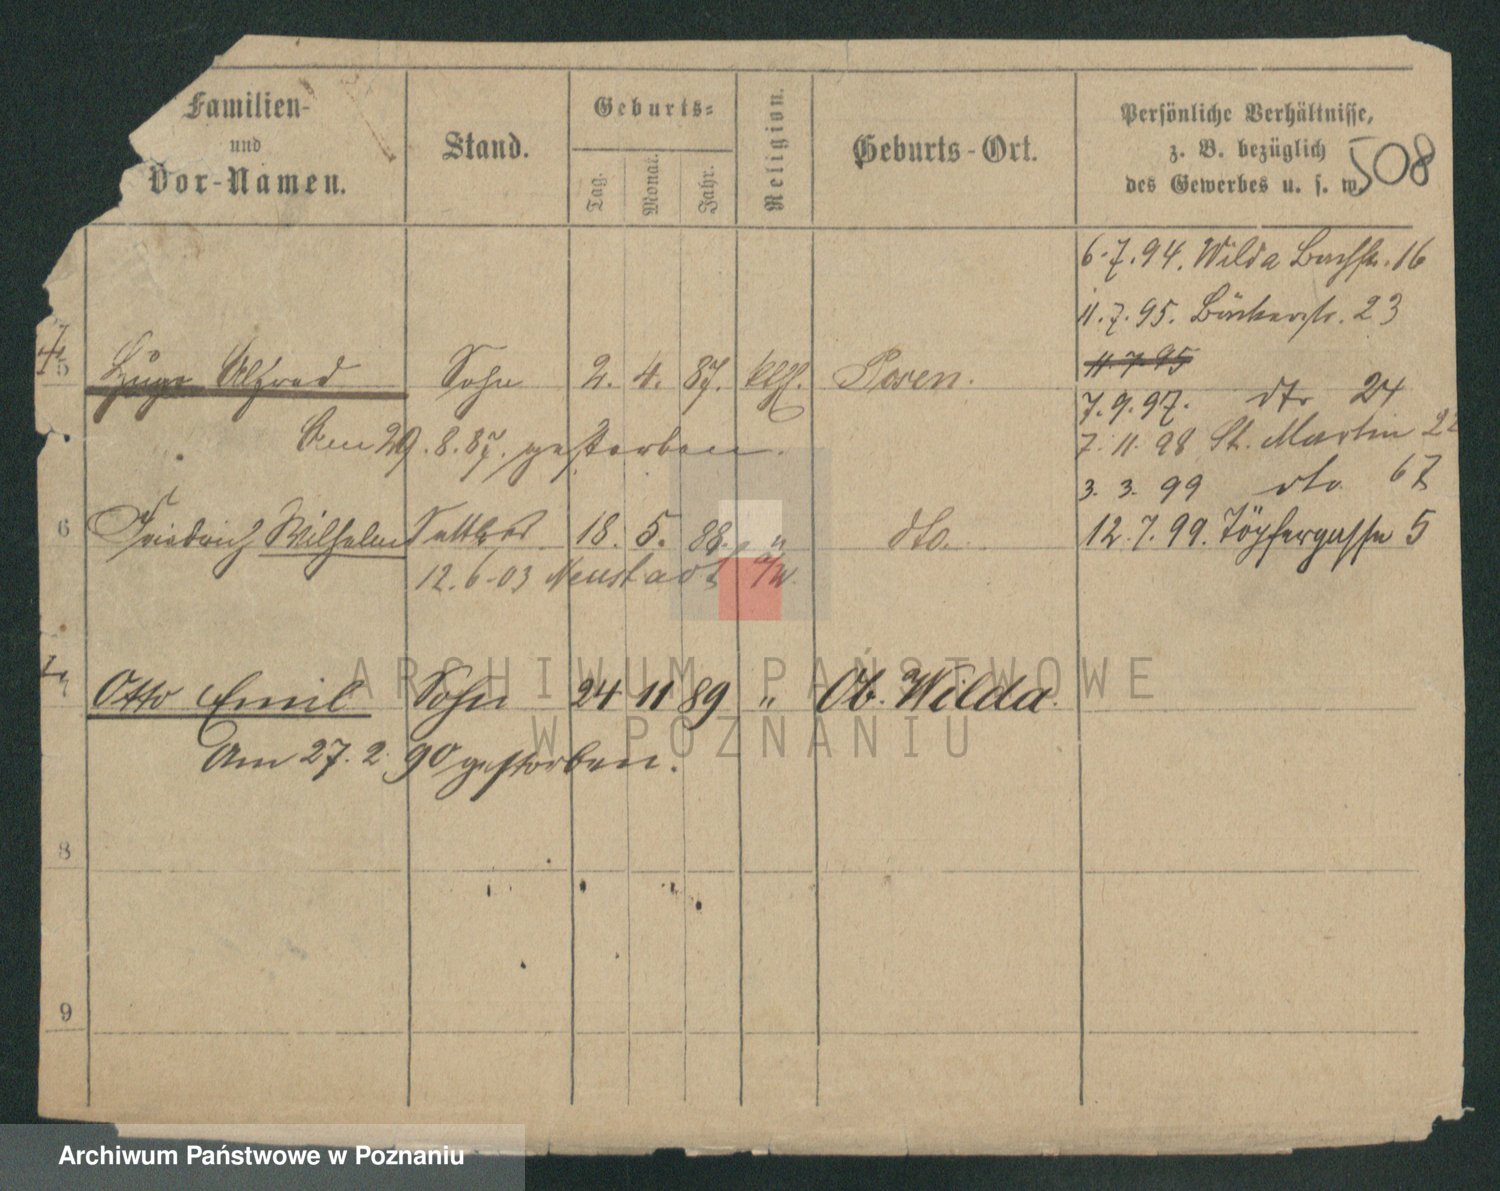 Familien-
und
Vor-Namen.
Stand.
Geburts-
Tag.
Monat.
Jahr.
Religion.
Geburts-Ort.
Persönliche Verhältnisse,
z. B. bezüglich
des Gewerbes u. s. w.
508
6.7.94. Wilda Bachstr. 16
11.7.95. Bäckerstr. 23
11.7.95
5 Hugo Alfred Sohn 2. 4. 87. kth. Posen.
7.9.97. dto 24
Am 29.8.87. gestorben.
7.11.98 St. Martin 22
3.3.99 dto. 67
6 Friedrich Wilhelm Sattler 18. 5. 88. " dto.
12.7.99. Töpfergasse 5
12.6.03 Neustadt a/W.
7 Otto Emil Sohn 24 11 89 " Ob. Wilda.
Am 27.2.90 gestorben.
8
9
ARCHIWUM PAŃSTWOWE
W POZNANIU
Archiwum Państwowe w Poznaniu